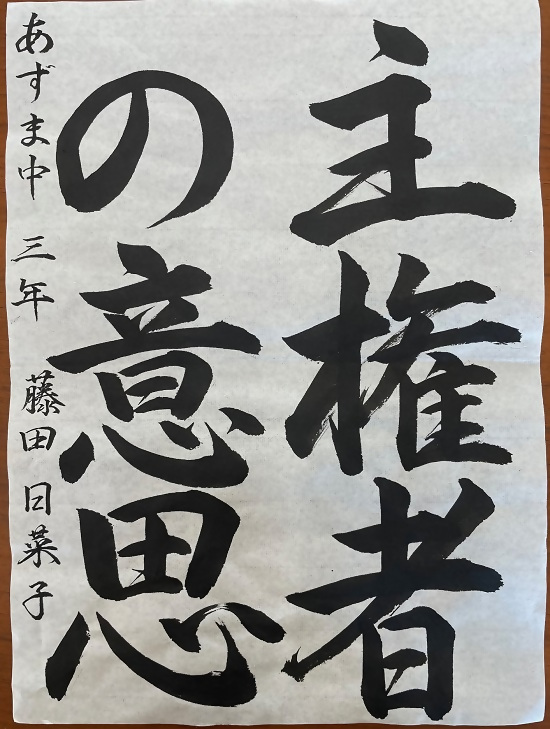 主権者
の意思
あずま中 三年 藤田日菜子